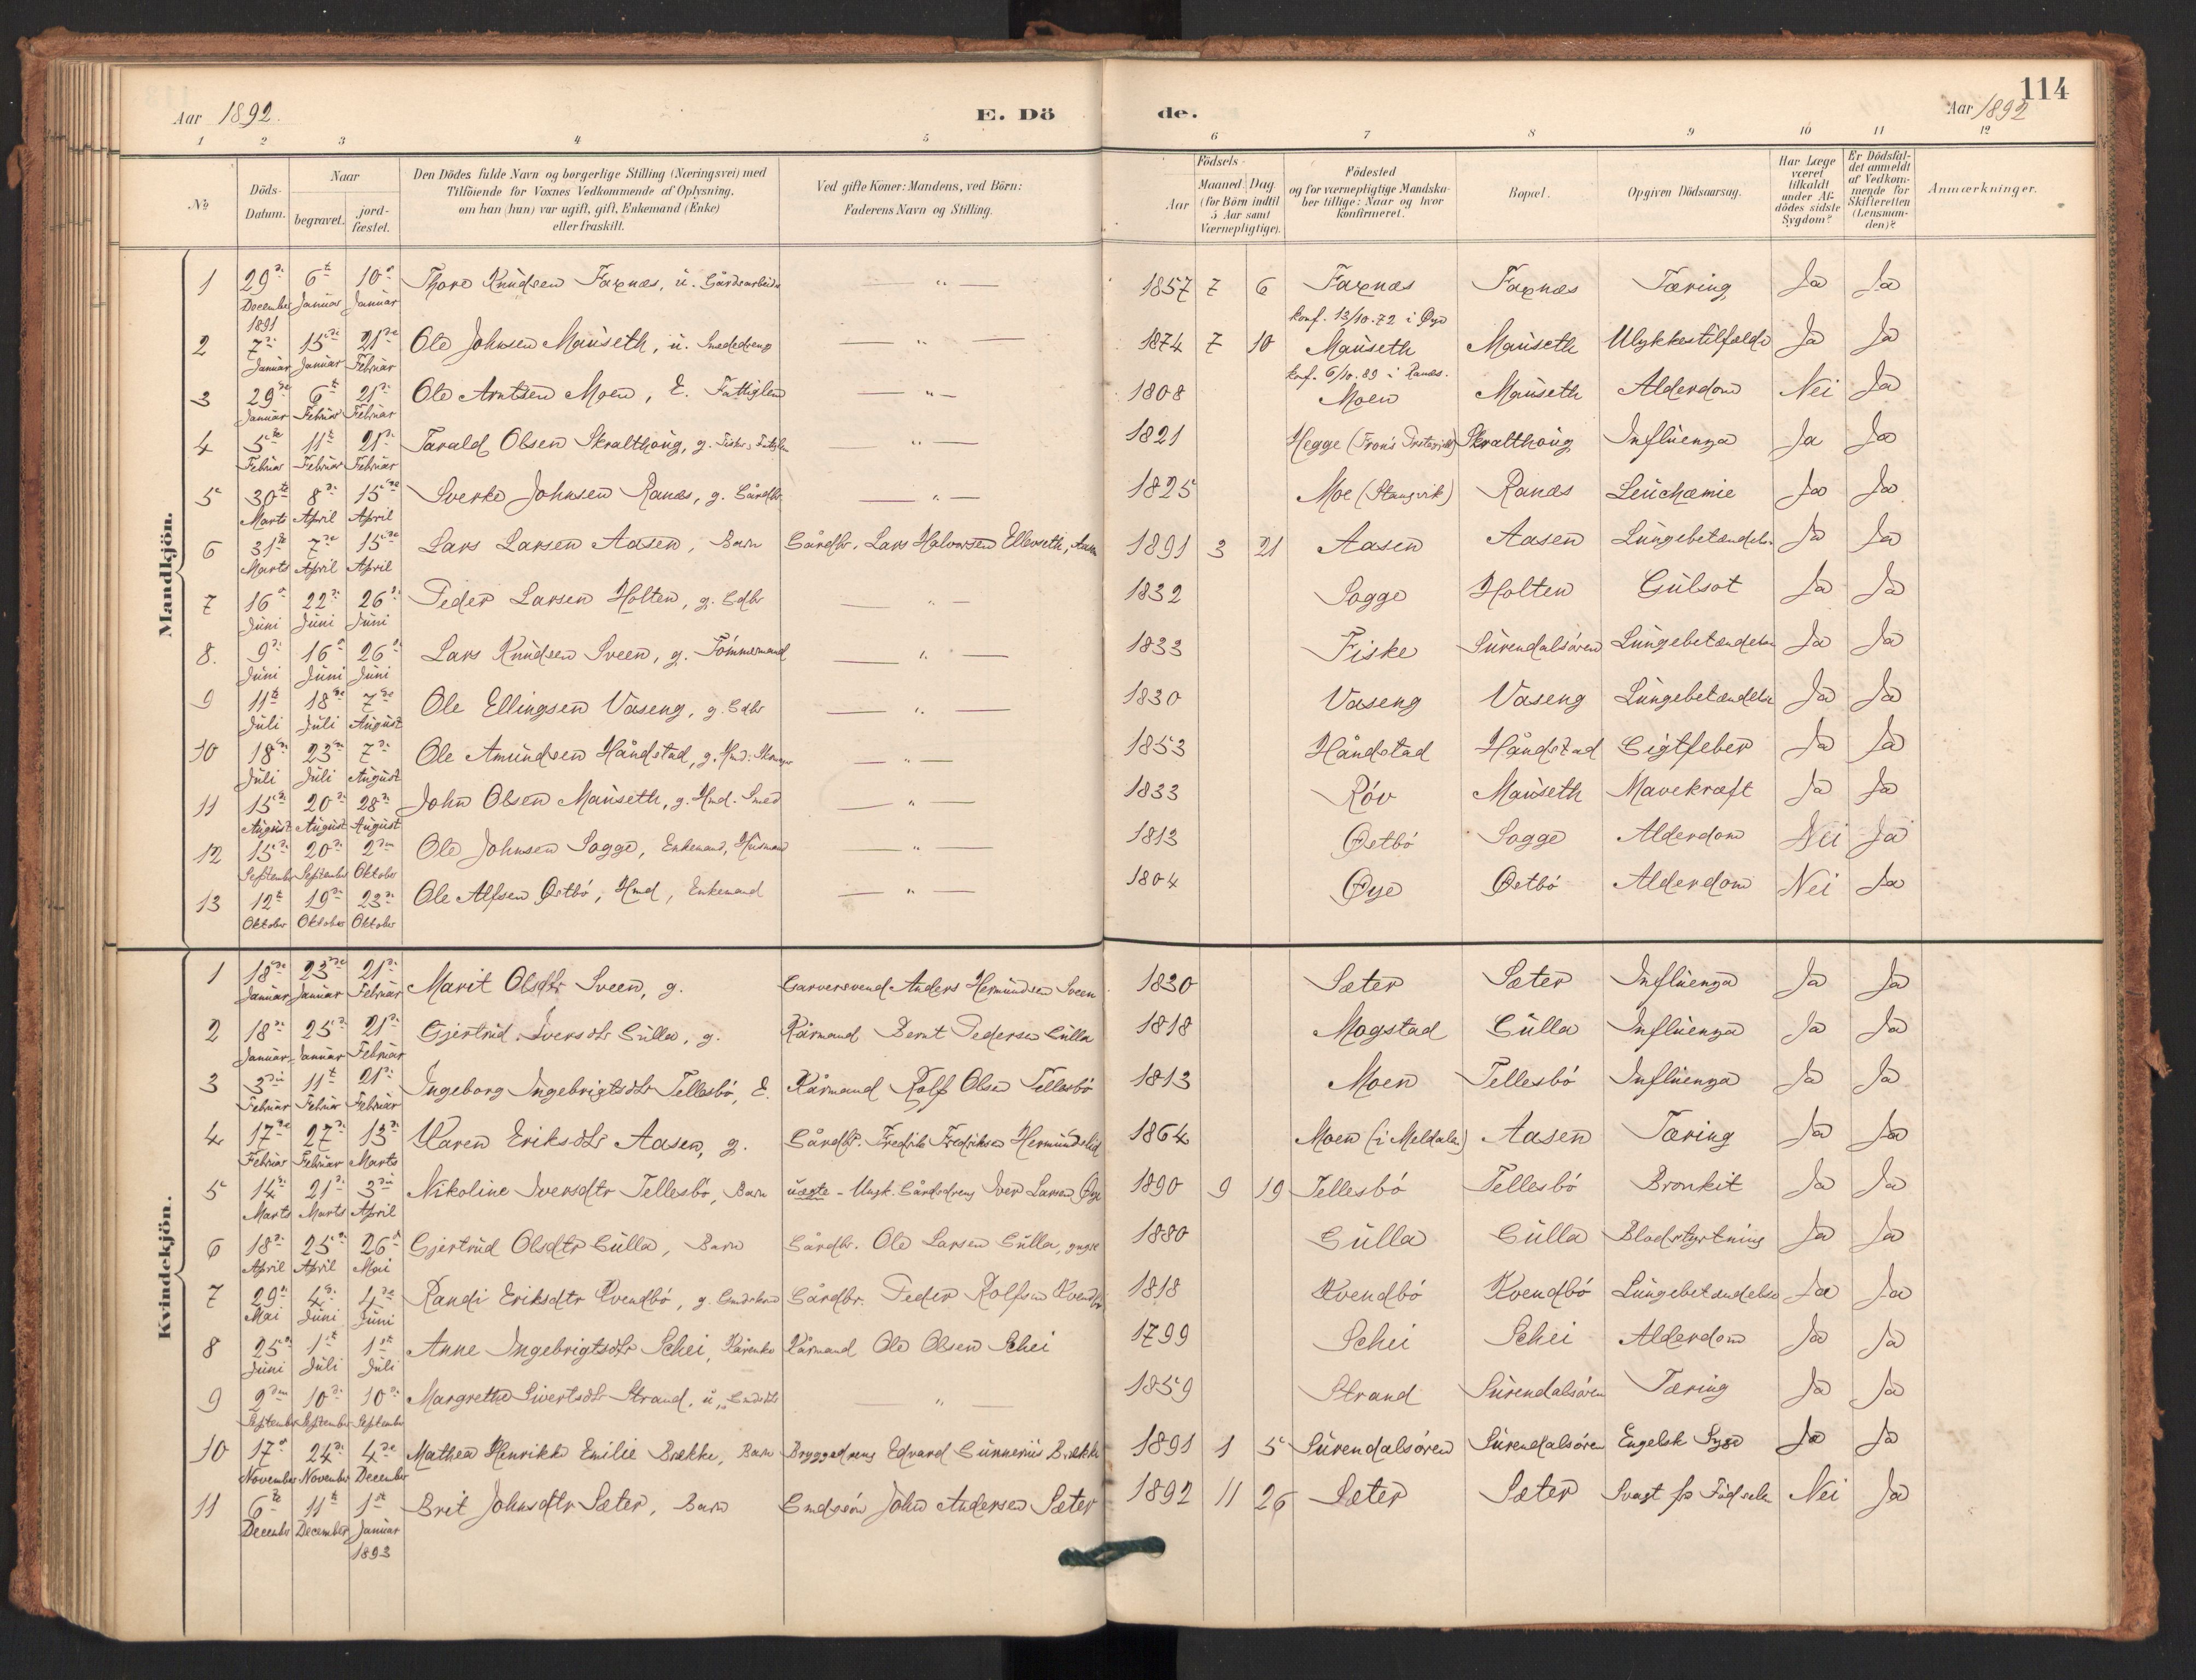 Aar 1892. E. Dö
de. Aar 1892 114
1 2 3 4 5 6 7 8 9 10 11 12
№
Döds-Datum.
Naar
begravet.
jord-fæstet.
Den Dödes fulde Navn og borgerlige Stilling (Næringsvei) med
Tilföiende for Voxnes Vedkommende af Oplysning,
om han (hun) var ugift, gift, Enkemand (Enke)
eller fraskilt.
Ved gifte Koner: Mandens, ved Börn:
Faderens Navn og Stilling.
Födsels-
Aar
Maaned. Dag
(for Börn indtil
5 Aar samt
Værnepligtige).
Födested
og for værnepligtige Mandska-
ber tillige: Naar og hvor
konfirmeret.
Bopæl.
Opgiven Dödsaarsag.
Har Læge
været
tilkaldt
under Af-
dödes sidste
Sygdom?
Er Dödsfal-
det anmeldt
af Vedkom-
mende for
Skifteretten
(Lensman-
den)?
Anmærkninger.
Mandkjön.
1 29de December 1891 6te Januar 10de Januar Thore Knudsen Faxnæs, u. Gårdsarbeider — " — 1857 7 6 Faxnæs konf. 13/10.72 i Øye Faxnæs Tæring Ja Ja
2 7de Januar 15de Januar 21de Februar Ole Johnsen Mauseth, u. Smededreng — " — 1874 7 10 Mauseth konf. 6/10.89 i Ranes. Mauseth Ulykkestilfælde Ja Ja
3 29de Januar 6te Februar 21de Februar Ole Arntsen Moen, E. Fattiglem — " — 1808 Moen Mauseth Alderdom Nei Ja
4 5te Februar 11te Februar 21de Februar Tarald Olsen Skralthoug, g. — " — 1821 Hegge Skralthoug Influenza Ja Ja
5 30te Marts 8de April 15de April Sverke Johnsen Ranæs, g. Gårdbr. — " — 1825 Moe (Stangvik) Ranæs Leuchæmie Ja Ja
6 31te Marts 7de April 15de April Lars Larsen Aasen, Barn Gårdbr. Lars Halvorsen Ellevseth, Aasen 1891 3 21 Aasen Aasen Lungebetændelse Ja Ja
7 16de Juni 22de Juni 26de Juni Peder Larsen Holten, g. Gdbr — " — 1832 Sogge Holten Gulsot Ja Ja
8. 9de Juni 16de Juni 26de Juni Lars Knudsen Sveen, g. Tömmermand — " — 1833 Fiske Surendalsören Lungebetændelse Ja Ja
9 11te Juli 18de Juli 7de August Ole Ellingsen Vaseng, g. Gdbr — " — 1830 Vaseng Vaseng Lungebetændelse Ja Ja
10 18de Juli 23de Juli 7de August Ole Amundsen Håndstad, g. Hmd. — " — 1853 Håndstad Håndstad Gigtfeber Ja Ja
11 15de August 20de August 28de August John Olsen Mauseth, g. Hmd. Smed — " — 1833 Röv Mauseth Mavekræft Ja Ja
12 15de September 20de September 2den Oktober Ole Johnsen Sogge, Enkemand, Husmand — " — 1813 Østbö Sogge Alderdom Nei Ja
13 12te Oktober 19de Oktober 23de Oktober Ole Alfsen Østbö, Hmd, Enkemand — " — 1804 Øye Østbö Alderdom Nei Ja
Kvindekjön.
1 18de Januar 23de Januar 21de Februar Marit Olsdtr Sveen, g. Garversvend Anders Hermundsen Sveen 1830 Sæter Sæter Influenza Ja Ja
2 18de Januar 25de Januar 21de Februar Gjertrud Iversdtr Gulla, g. Kårmand Bernt Pedersen Gulla 1818 Mogstad Gulla Influenza Ja Ja
3 3die Februar 11te Februar 21de Februar Ingeborg Ingebrigtsdtr Tellesbö, E. Kårmand Rolf Olsen Tellesbö 1813 Moen Tellesbö Influenza Ja Ja
4 17de Februar 27de Februar 13de Marts Karen Eriksdtr Aasen, g. Gårdbr. Fredrik Fredriksen Hermundslid 1864 Moen (i Meldalen) Aasen Tæring Ja Ja
5 14de Marts 21de Marts 3die April Nikoline Iversdtr Tellesbö, Barn uægte - Ungk. Gårdsdreng Iver Larsen Øye 1890 9 19 Tellesbö Tellesbö Bronkit Ja Ja
6 18de April 25de April 26de Mai Gjertrud Olsdtr Gulla, Barn Gårdbr. Ole Larsen Gulla, yngre 1880 Gulla Gulla Blodstyrtning Ja Ja
7 29de Mai 4de Juni 4de Juni Randi Eriksdtr Kvendbö, g. Gårdbr. Peder Rolfsen Kvendbö 1818 Kvendbö Kvendbö Lungebetændelse Ja Ja
8 25de Juni 1ste Juli 1ste Juli Anne Ingebrigtsdtr Schei, Kårenke Kårmand Ole Olsen Schei 1799 Schei Schei Alderdom Ja Ja
9 2den September 10de September 10de September Margrethe Sivertsdtr Strand, u, Gmdsdtr — " — 1859 Strand Surendalsören Tæring Ja Ja
10 17de November 24de November 4de December Mathea Henrikke Emilie Bække, Barn Bryggedreng Edvard Gunnerius Bække 1891 1 5 Surendalsören Surendalsören Engelsk Syge Ja Ja
11 6te December 11te December 1ste Januar 1893 Brit Johnsdtr Sæter, Barn Gmdssön John Andersen Sæter 1892 11 26 Sæter Sæter Svagt fra Födselen Nei Ja